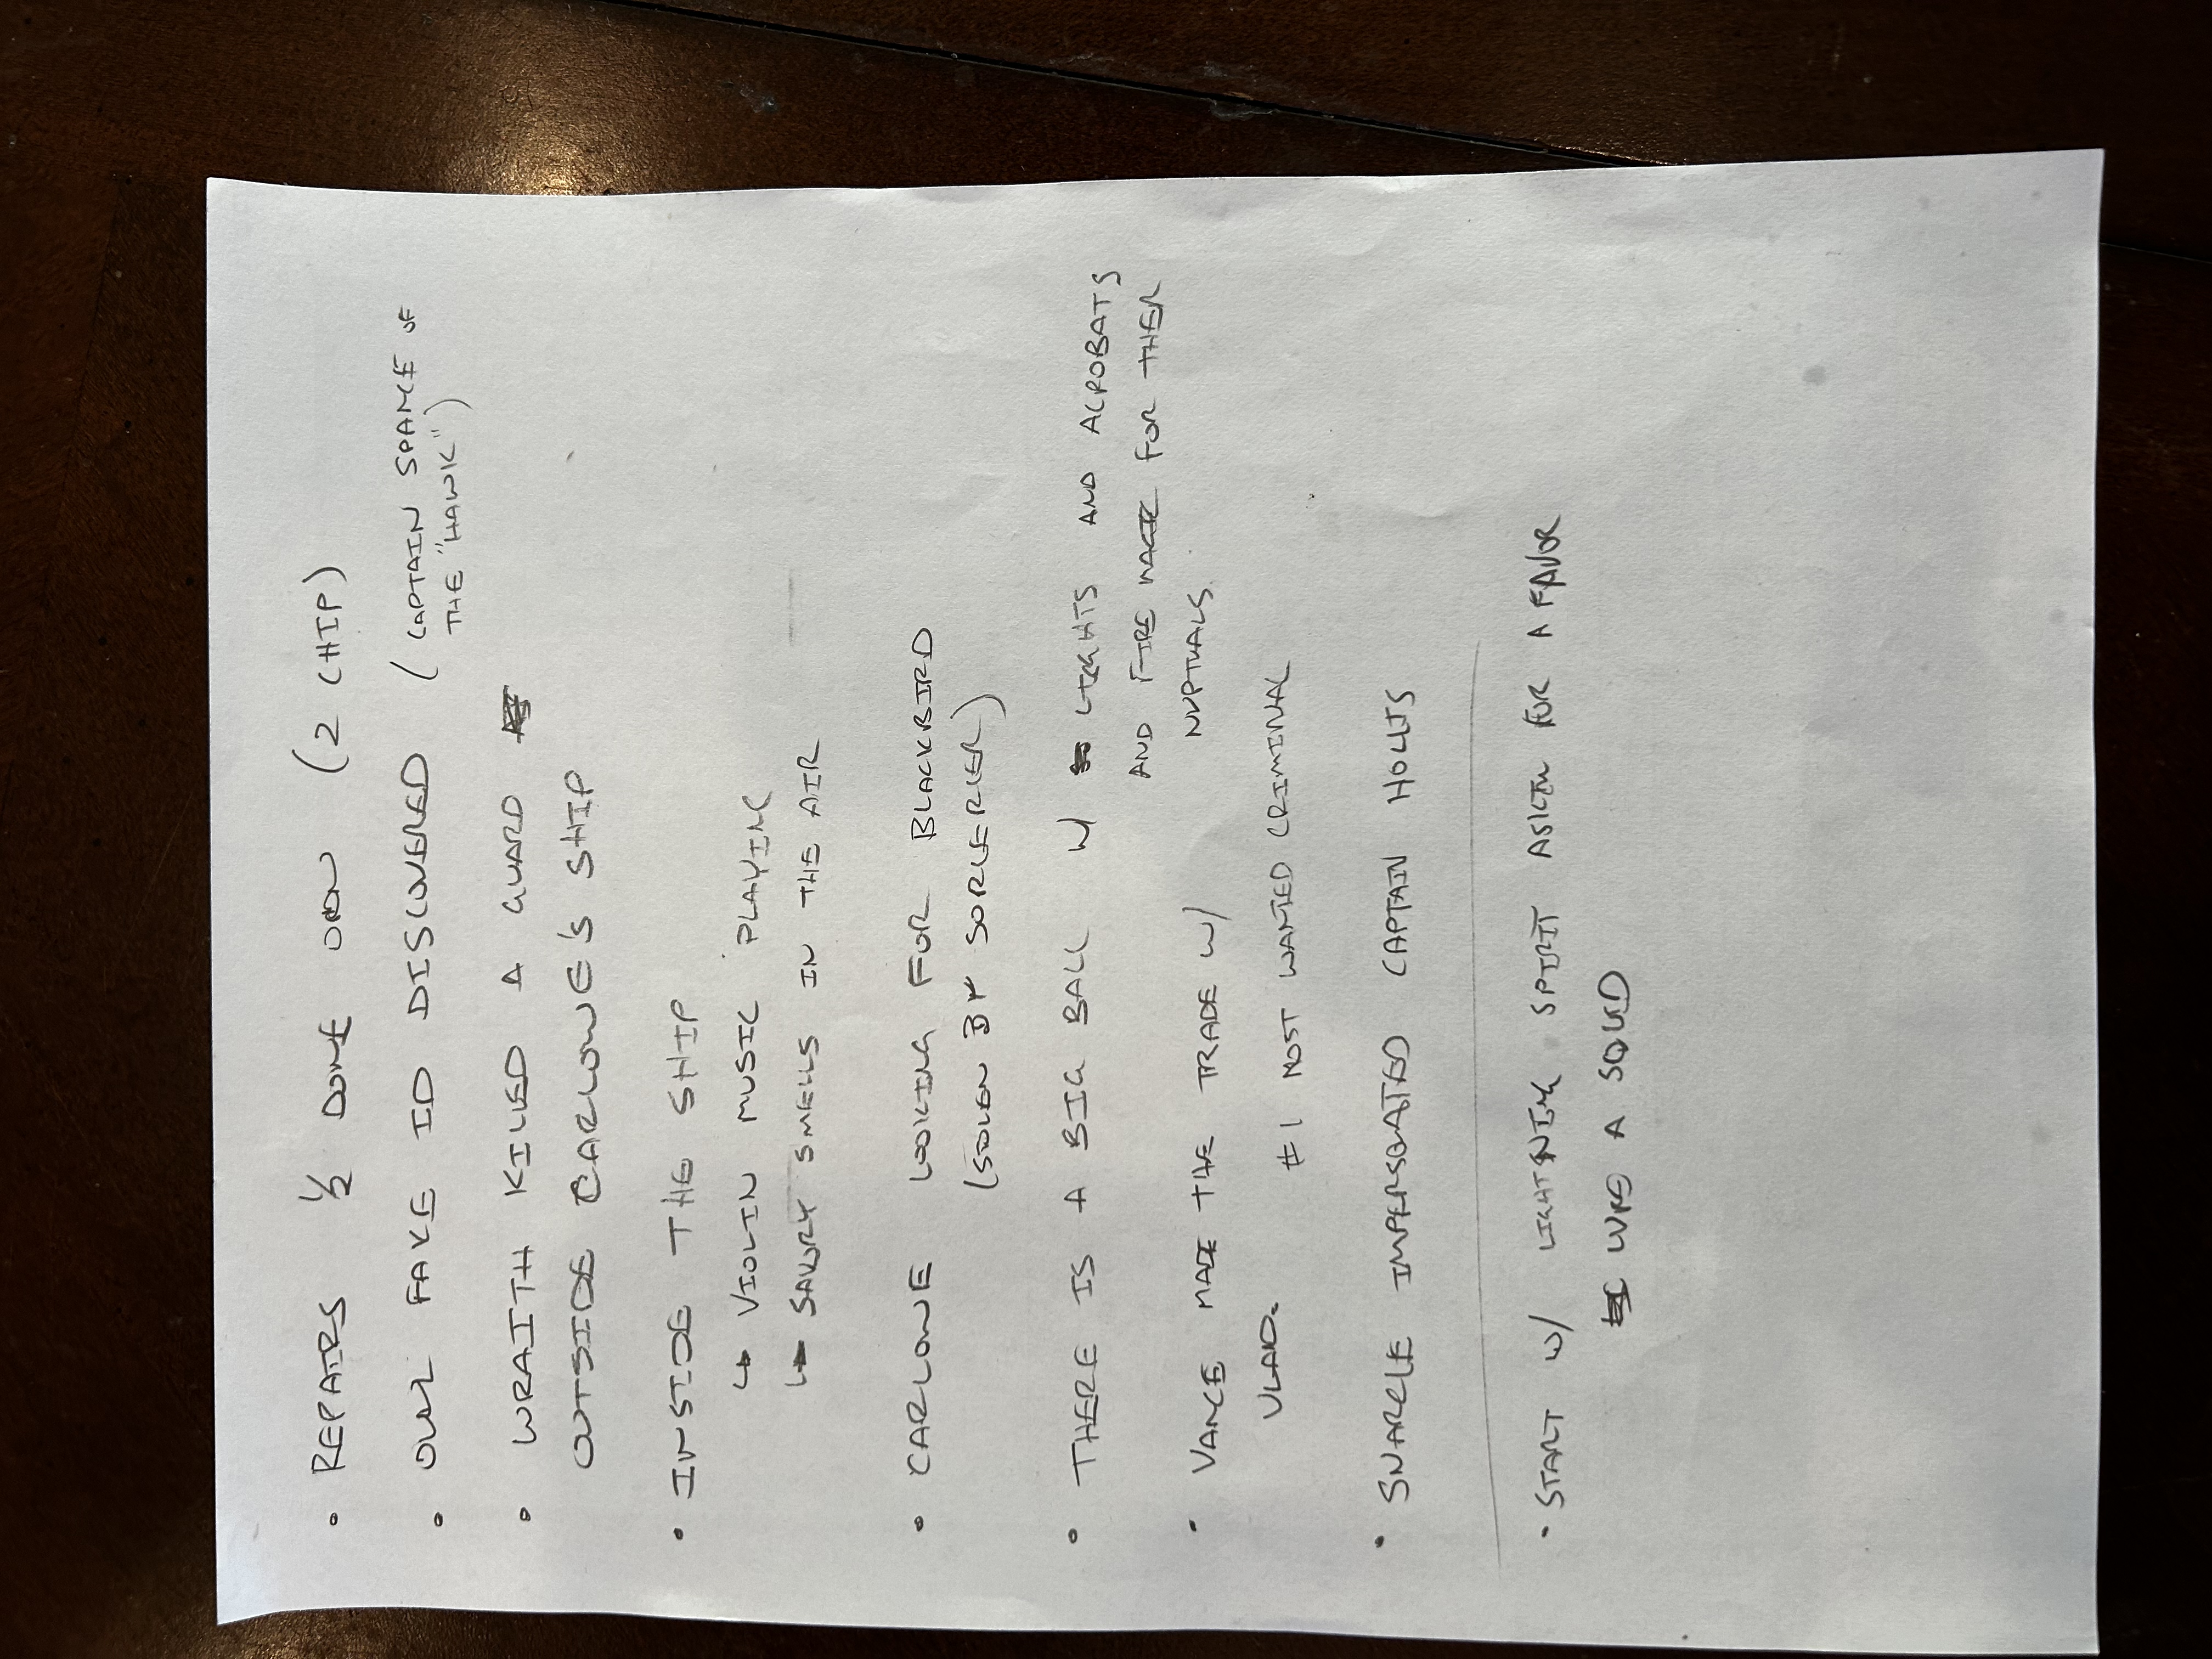 • REPAIRS 1/2 DONE (2 CHIP)
• OUR FAKE ID DISCOVERED (CAPTAIN SPANCE OF
THE "HAWK")
• WRAITH KILLED A GUARD
OUTSIDE CARLOWE'S SHIP
• INSIDE THE SHIP
↳ VIOLIN MUSIC PLAYING
↳ SAVORY SMELLS IN THE AIR
• CARLOWE LOOKING FOR BLACKBIRD
(STOLEN BY SORCERER)
• THERE IS A BIG BALL W/ LIGHTS AND ACROBATS
AND FIRE FOR THER
NUPTUALS.
• VANCE MADE THE TRADE W/
VLAD. #1 MOST WANTED CRIMINAL
• SNARLE IMPERSONATED CAPTAIN HOLLIS
• START W/ LIGHTNING SPIRIT ASKING FOR A FAVOR
LIKE A SQUID